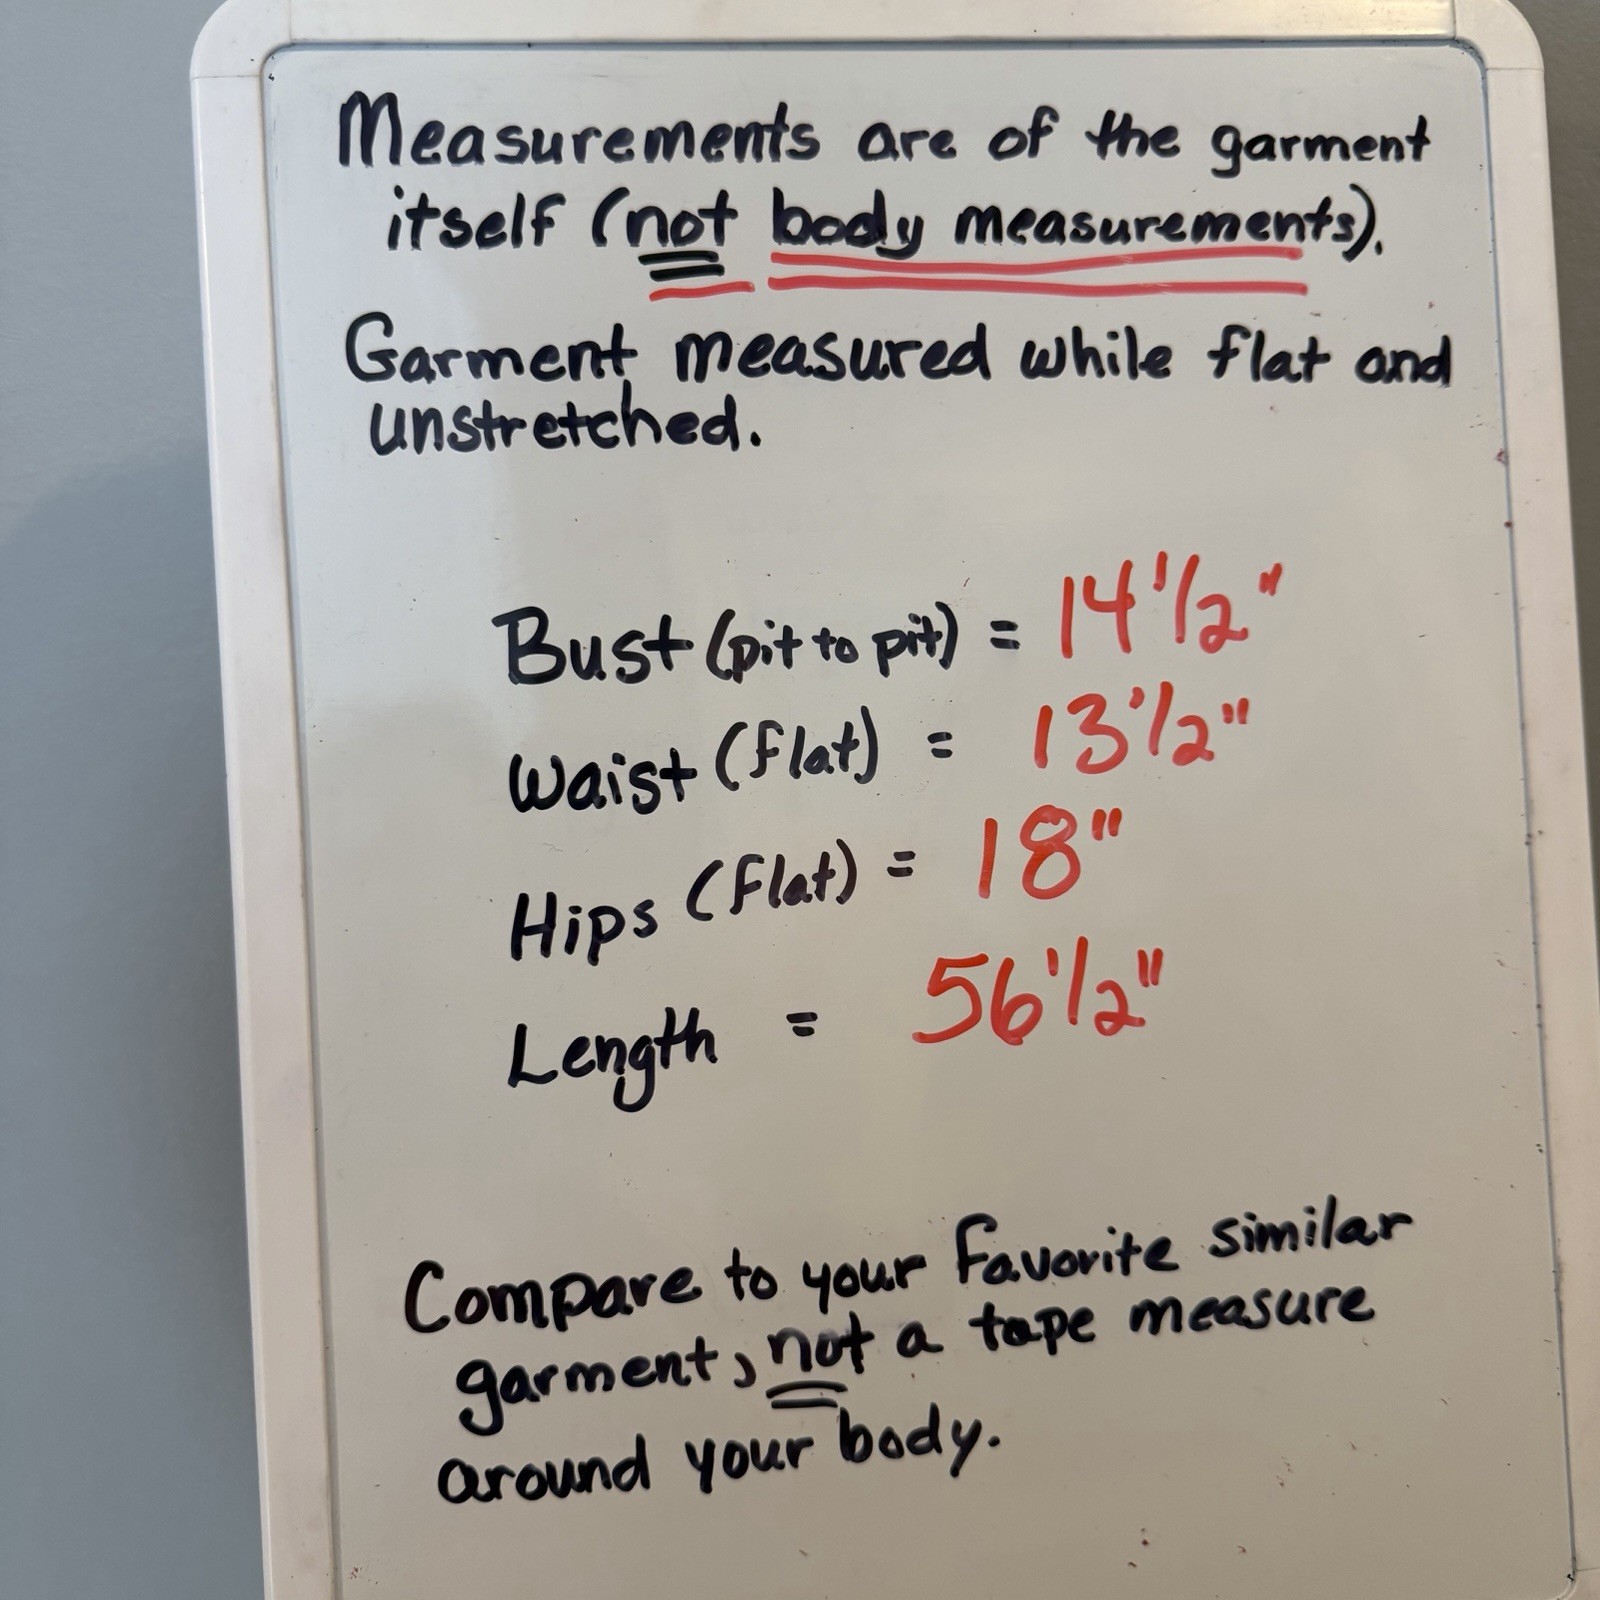 Measurements are of the garment
itself (not body measurements).
Garment measured while flat and
unstretched.
Bust (pit to pit) = 14 1/2"
Waist (flat) = 13 1/2"
Hips (flat) = 18"
Length = 56 1/2"
Compare to your favorite similar
garment, not a tape measure
around your body.